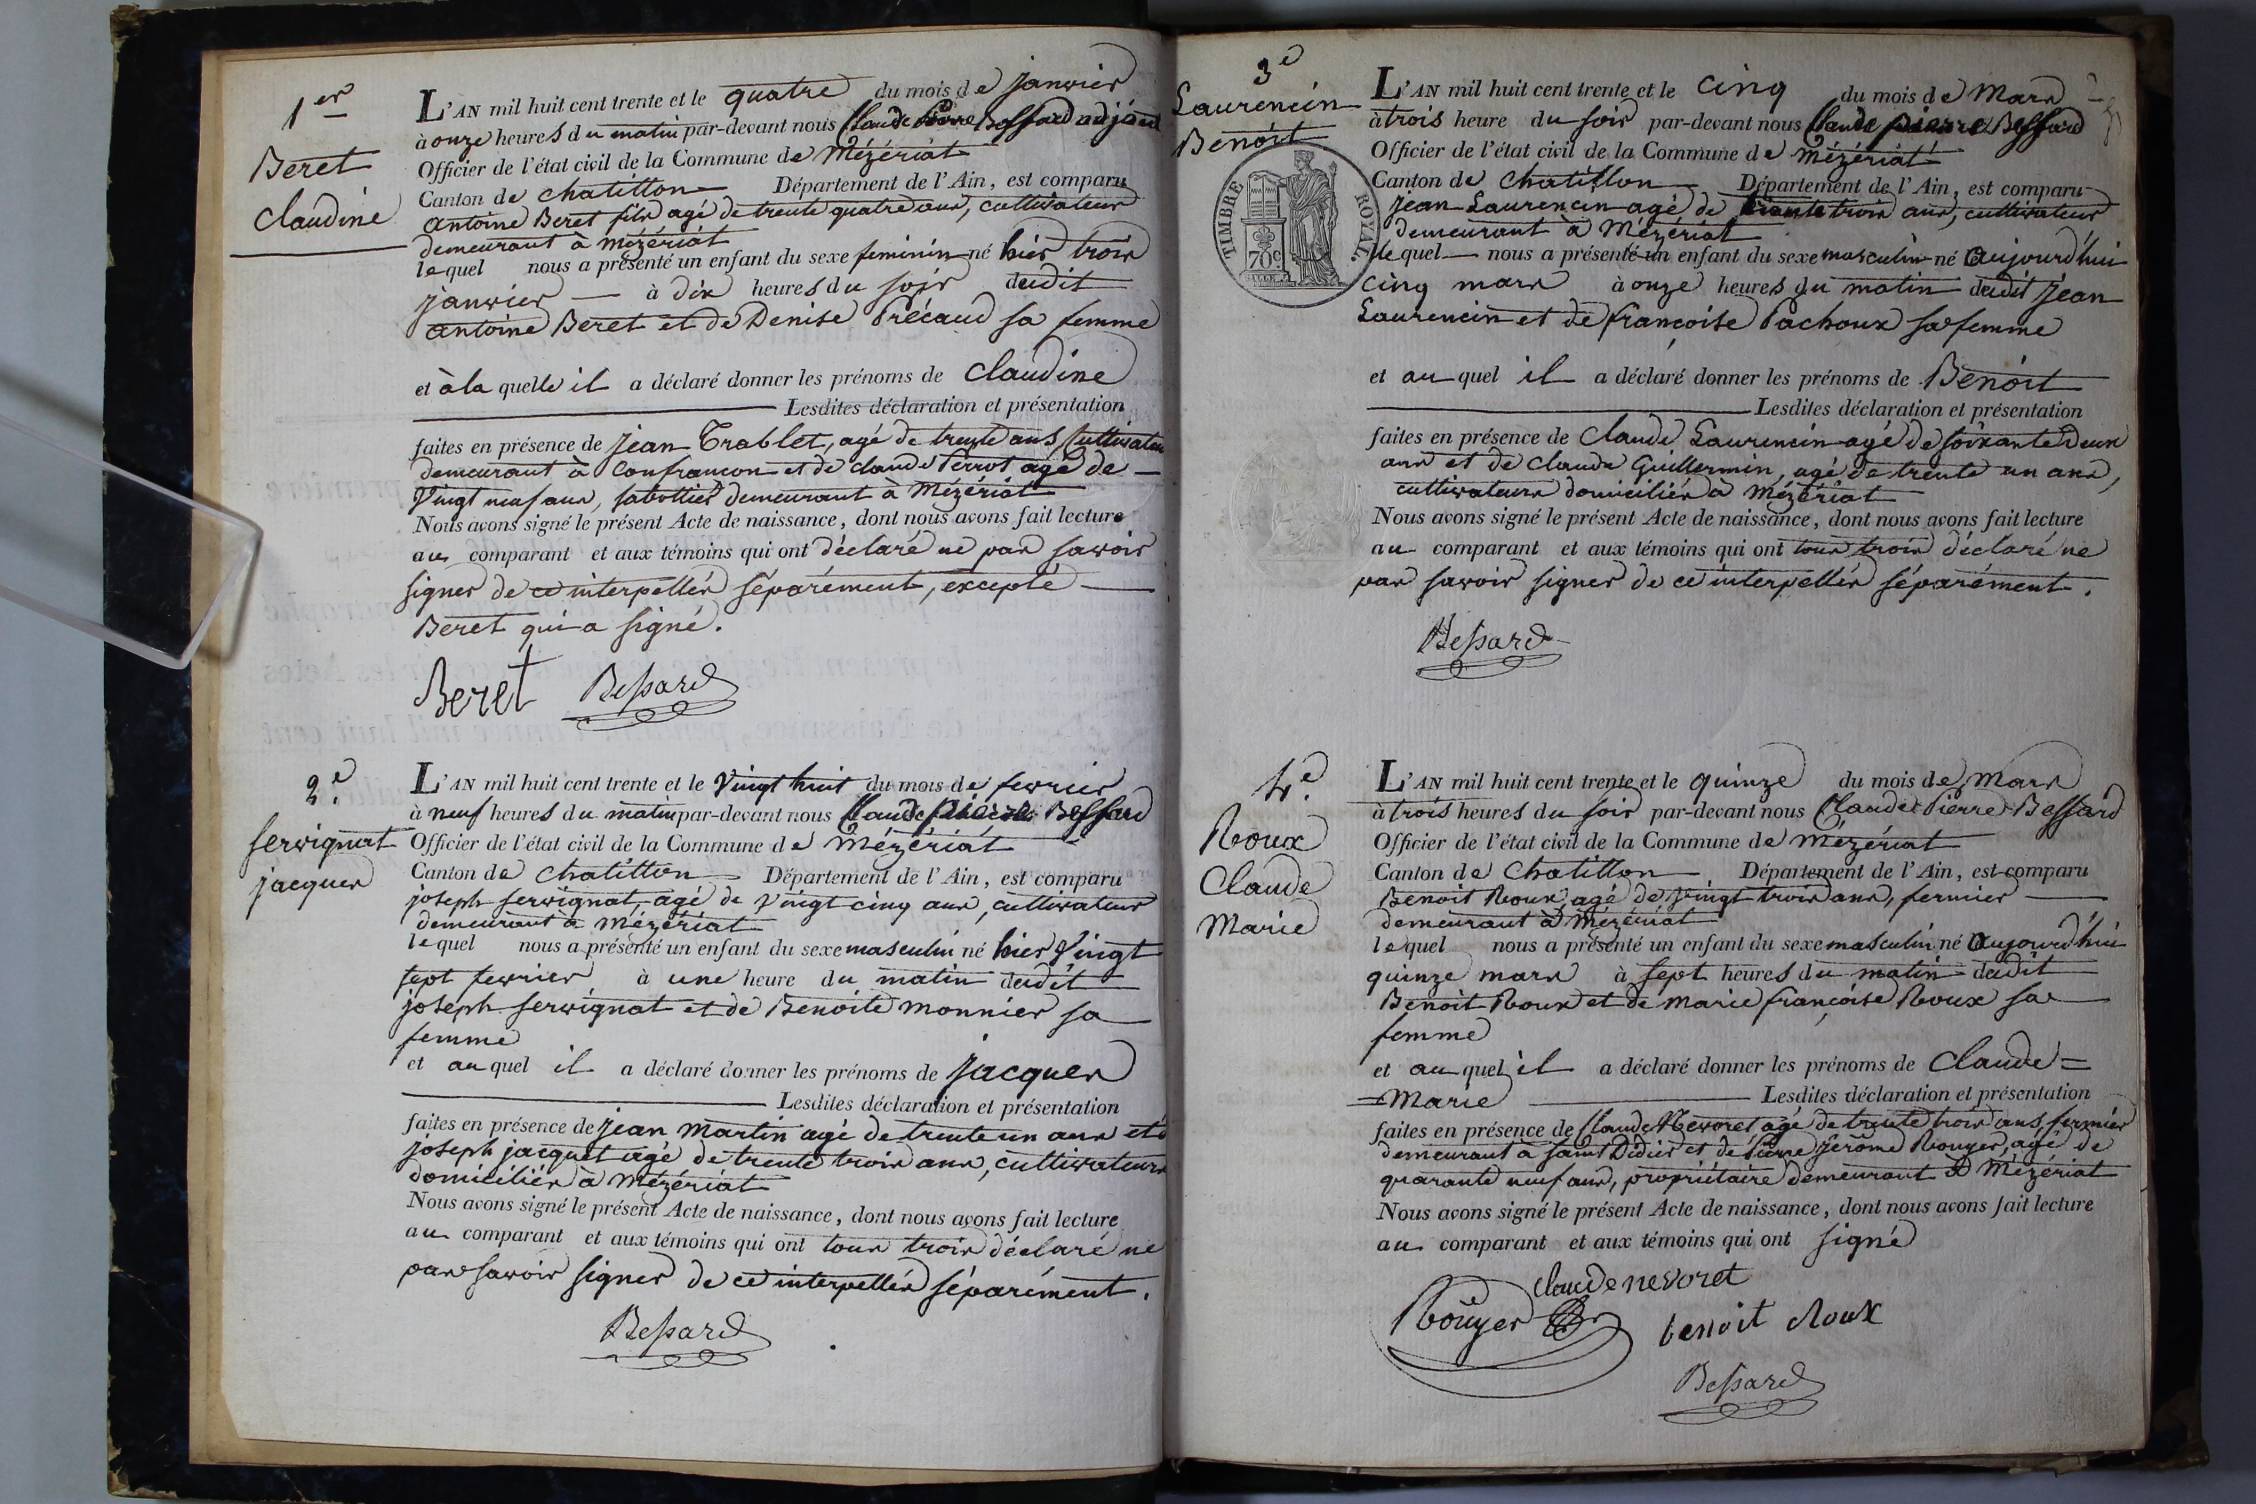 1er
Beret
Claudine
L'AN mil huit cent trente et le quatre du mois de janvier
à onze heures du matin par-devant nous Claude Pierre Bessard adjoint
Officier de l'état civil de la Commune de Mézériat
Canton de Chatillon Département de l'Ain, est comparu
antoine Beret fils agé de trente quatre ans, cultivateur
demeurant à Mézériat
lequel nous a présenté un enfant du sexe feminin né hier trois
janvier à dix heures du soir dudit
antoine Beret et de Denise Précaud sa femme
et à la quelle il a déclaré donner les prénoms de Claudine
Lesdites déclaration et présentation
faites en présence de jean Trablet, agé de trente ans, Cultivateur
demeurant à Confrancon et de claude Perrot agé de
Vingt neuf ans, sabottier demeurant à Mézériat
Nous avons signé le présent Acte de naissance, dont nous avons fait lecture
au comparant et aux témoins qui ont déclaré ne pas savoir
signer de ce interpellés séparément, excepté
Beret qui a signé.
Beret Bessard
2e
servignat
jacques
L'AN mil huit cent trente et le Vingt huit du mois de fevrier
à neuf heures du matin par-devant nous Claude pierre Bessard
Officier de l'état civil de la Commune de Mézériat
Canton de Chatillon Département de l'Ain, est comparu
joseph servignat, agé de Vingt cinq ans, cultivateur
demeurant à Mézériat
lequel nous a présenté un enfant du sexe masculin né hier Vingt
sept fevrier à une heure du matin dudit
joseph servignat et de Benoite Monnier sa
femme
et au quel il a déclaré donner les prénoms de jacques
Lesdites déclaration et présentation
faites en présence de jean Martin agé de trente un ans et de
joseph jacquet agé de trente trois ans, cultivateurs
domiciliés à Mézériat
Nous avons signé le présent Acte de naissance, dont nous avons fait lecture
au comparant et aux témoins qui ont tous trois déclaré ne
pas savoir signer de ce interpellés séparément.
Bessard
3e
Laurencin
Benoit
TIMBRE ROYAL
70c
L'AN mil huit cent trente et le cinq du mois de Mars
à trois heure du soir par-devant nous Claude pierre Bessard
Officier de l'état civil de la Commune de Mézériat
Canton de Chatillon Département de l'Ain, est comparu
jean Laurencin agé de trente trois ans, cultivateur
demeurant à Mézériat
lequel nous a présenté un enfant du sexe masculin né aujourd'hui
cinq mars à onze heures du matin dudit jean
Laurencin et de françoise Pachoux sa femme
et au quel il a déclaré donner les prénoms de Benoit
Lesdites déclaration et présentation
faites en présence de Claude Laurencin agé de soixante deux
ans et de Claude Guillermin, agé de trente un ans,
cultivateurs domiciliés à Mézériat
Nous avons signé le présent Acte de naissance, dont nous avons fait lecture
au comparant et aux témoins qui ont tous trois déclaré ne
pas savoir signer de ce interpellés séparément.
Bessard
4e
Roux
Claude
Marie
L'AN mil huit cent trente et le quinze du mois de Mars
à trois heures du soir par-devant nous Claude Pierre Bessard
Officier de l'état civil de la Commune de Mézériat
Canton de Chatillon Département de l'Ain, est comparu
Benoit Roux, agé de Vingt trois ans, fermier
demeurant à Mézériat
lequel nous a présenté un enfant du sexe masculin né aujourd'hui
quinze mars à sept heures du matin dudit
Benoit Roux et de marie françoise Roux sa
femme
et au quel il a déclaré donner les prénoms de Claude=
=Marie Lesdites déclaration et présentation
faites en présence de Claude Nevoret agé de trente trois ans, fermier
demeurant à Saint Didier et de Pierre Jerôme Rouyer, agé de
quarante neuf ans, propriétaire demeurant à Mézériat
Nous avons signé le présent Acte de naissance, dont nous avons fait lecture
au comparant et aux témoins qui ont signé
Claude nevoret
Rouyer benoit Roux
Bessard